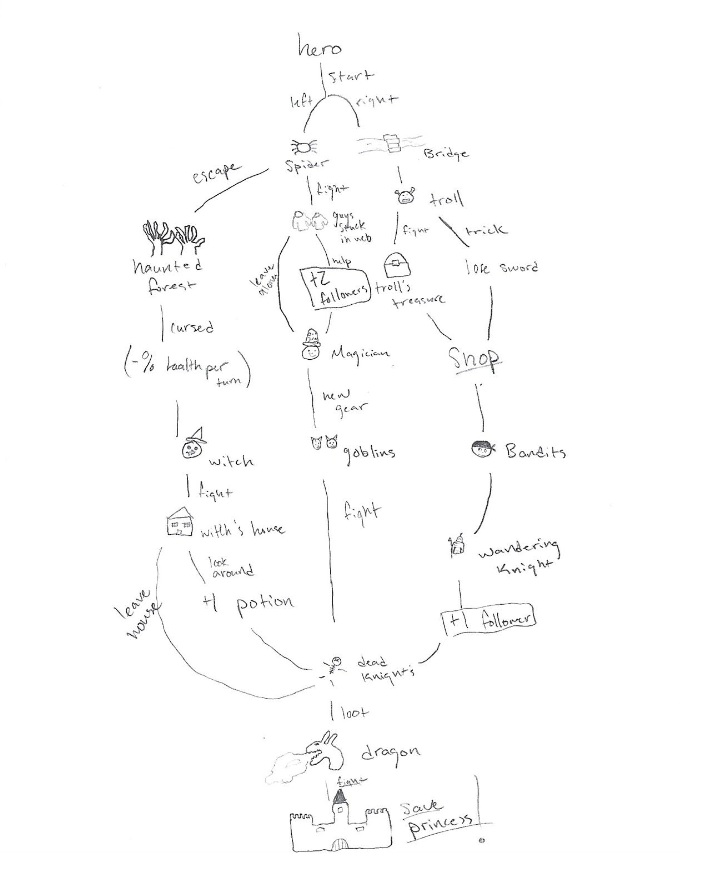 hero
start
left
right
Spider
Bridge
escape
fight
troll
guys
stuck
in web
fight
trick
haunted
forest
leave
alone
help
+2
followers
troll's
treasure
lose sword
cursed
Magician
Shop
(-% health per
turn)
new
gear
witch
goblins
Bandits
fight
fight
witch's house
look
around
wandering
Knight
leave
house
+1 potion
+1 follower
dead
Knights
loot
dragon
fight
Save
princess!